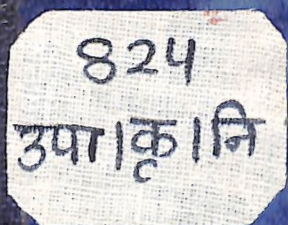 824
उपा।कृ।नि